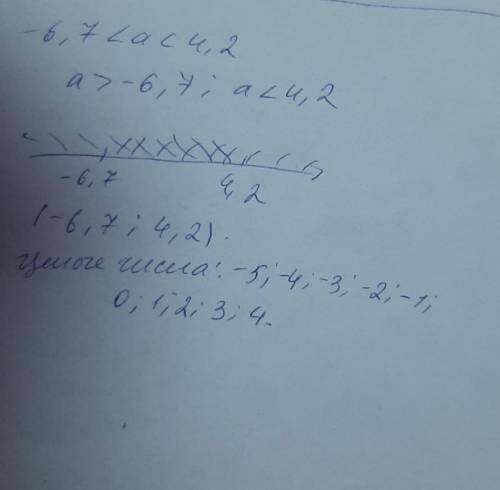 -6,7 < a < 4,2
a > -6,7; a < 4,2
-6,7 4,2
(-6,7; 4,2).
Целые числа: -5; -4; -3; -2; -1;
0; 1; 2; 3; 4.